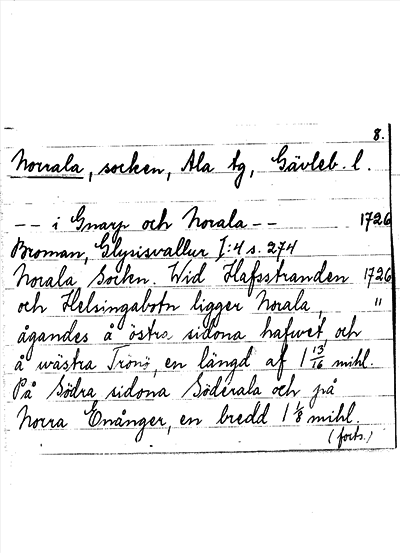 8.
Norrala, socken, Ala tg, Gävleb. l.
-- i Gnarp och Norala -- 1726
Broman, Glysisvallur I:4 s. 274
Norala Sockn. Wid Hafsstranden 1726
och Helsingabotn ligger Norala, "
ägandes å östra sidona hafwet och
å wästra Trönö, en längd af 1 13/16 mihl.
På Södra sidona Söderala och på
Norra Enånger, en bredd 1 1/8 mihl.
(forts.)